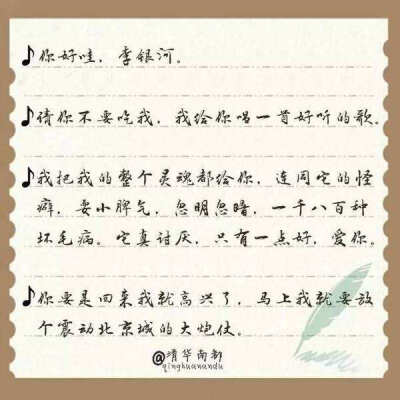 ♪你好哇，李银河。
♪请你不要吃我，我给你唱一首好听的歌。
♪我把我的整个灵魂都给你，连同它的怪
癖，耍小脾气，忽明忽暗，一千八百种
坏毛病。它真讨厌，只有一点好，爱你。
♪你要是回来我就高兴了，马上我就要放
个震动北京城的大炮仗。
@清华南都
qinghuanandu